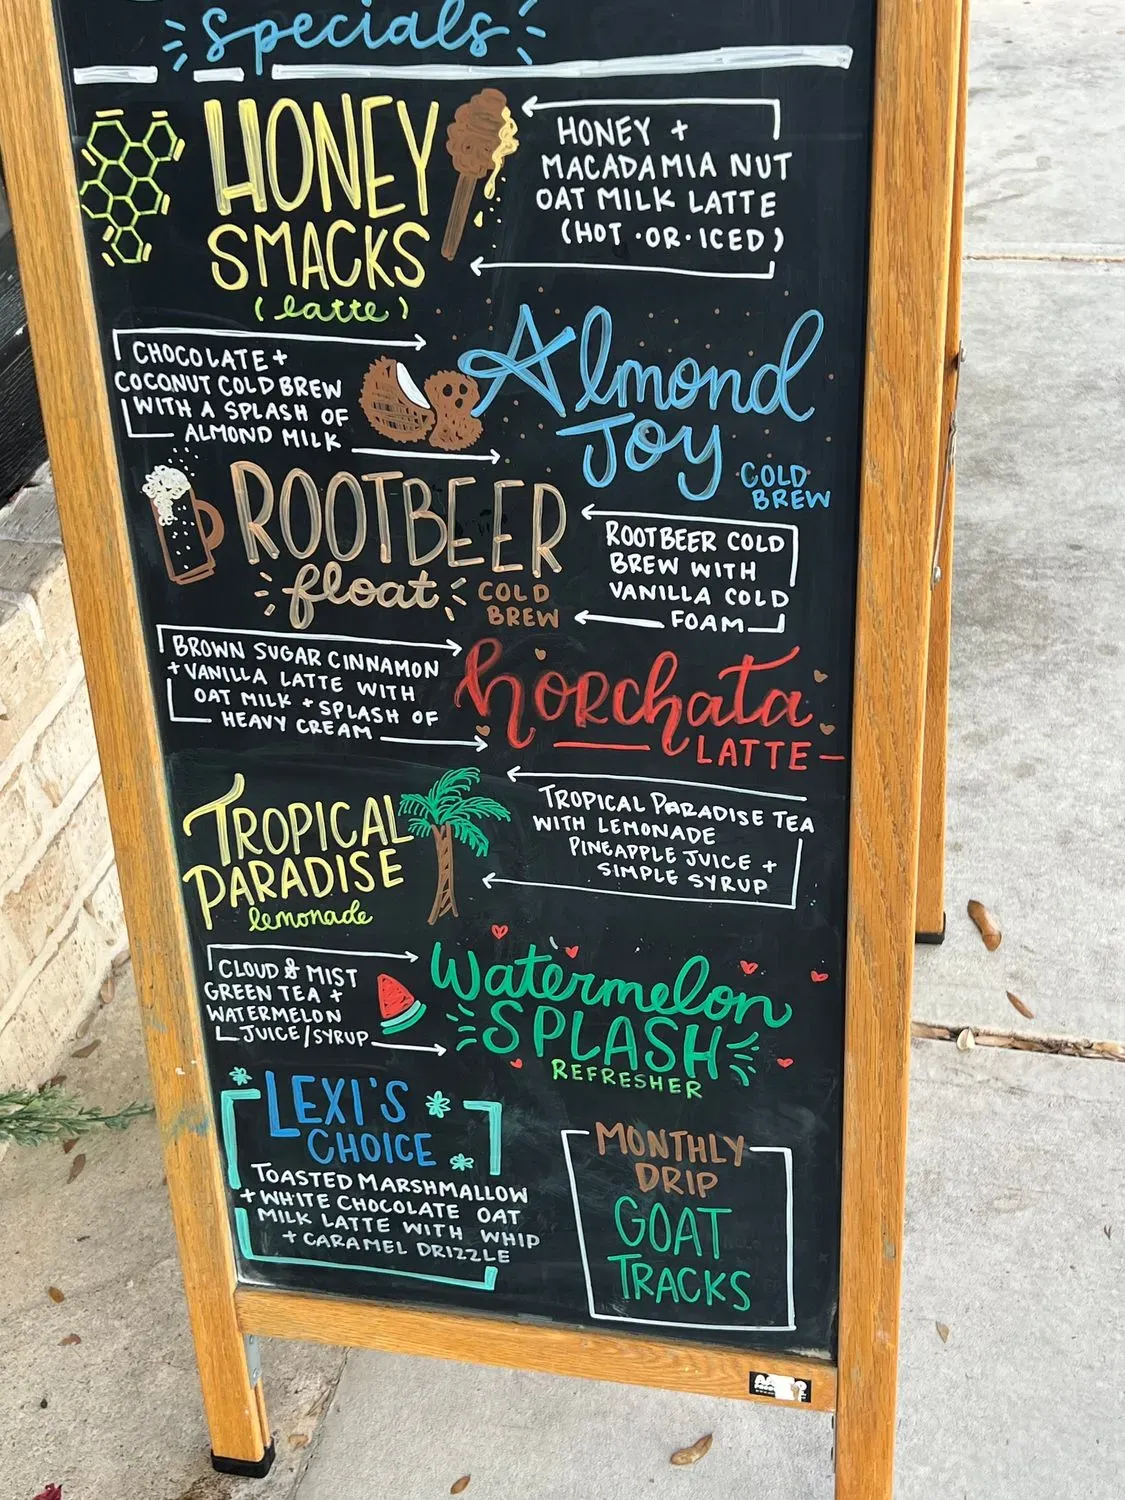 specials
HONEY
SMACKS
(latte)
HONEY +
MACADAMIA NUT
OAT MILK LATTE
(HOT·OR·ICED)
CHOCOLATE +
COCONUT COLD BREW
WITH A SPLASH OF
ALMOND MILK
Almond
Joy
COLD
BREW
ROOTBEER
float
COLD
BREW
ROOTBEER COLD
BREW WITH
VANILLA COLD
FOAM
BROWN SUGAR CINNAMON
+ VANILLA LATTE WITH
OAT MILK + SPLASH OF
HEAVY CREAM
horchata
LATTE
TROPICAL
PARADISE
lemonade
TROPICAL PARADISE TEA
WITH LEMONADE
PINEAPPLE JUICE +
SIMPLE SYRUP
CLOUD & MIST
GREEN TEA +
WATERMELON
JUICE/SYRUP
Watermelon
SPLASH
REFRESHER
LEXI'S
CHOICE
TOASTED MARSHMALLOW
+ WHITE CHOCOLATE OAT
MILK LATTE WITH WHIP
+ CARAMEL DRIZZLE
MONTHLY
DRIP
GOAT
TRACKS